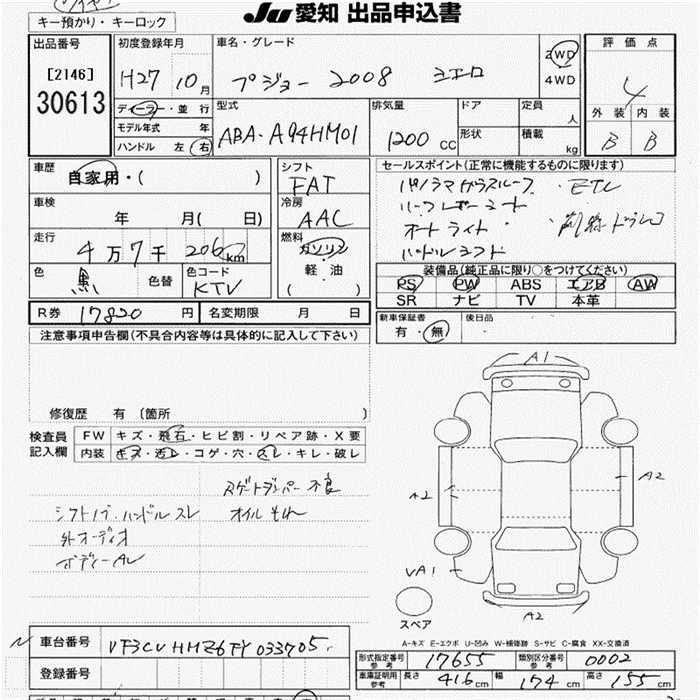 キー預かり・キーロック
JU 愛知 出品申込書
出品番号
[2146]
30613
初度登録年月
H27 10月
ディーラー・並行
モデル年式 年
ハンドル 左 右
車名・グレード
プジョー 2008 シエロ
2WD
4WD
型式
ABA-A94HM01
排気量
1200 CC
ドア
形状
定員 人
積載 kg
評価点
4
外装 内装
B B
車歴
自家用・( )
車検
年 月( 日)
走行
4万7千206km
色
黒
色替
色コード
KTV
シフト
FAT
冷房
AAC
燃料
ガソリン
軽・油
( )
R券 17820 円 名変期限 月 日
セールスポイント(正常に機能するものに限ります)
パノラマガラスルーフ ・ETC
ハーフレザーシート
オートライト ・前録ドラレコ
装備品(純正品に限り○をつけてください)
PS PW ABS エアB AW
SR ナビ TV 本革
新車保証書
有・無
後日品
注意事項申告欄(不具合内容等は具体的に記入して下さい)
修復歴 有 [箇所 ]
検査員
記入欄
FW キズ・飛石・ヒビ割・リペア跡・X要
内装 キズ・汚レ・コゲ・穴・スレ・キレ・破レ
シフトノブ・ハンドルスレ
外オーディオ
ボディーAU
オイルもれ
A1
A2
A2
VA1
A2
スペア
A-キズ E-エクボ U-凹み W-補修跡 S-サビ C-腐食 XX-交換済
車台番号 VF3CUHMZ6FY033705
登録番号
形式指定番号 参考 17655
類別区分番号 参考 0002
車庫証明用 参考 長さ 416cm 幅 174cm 高さ 155cm